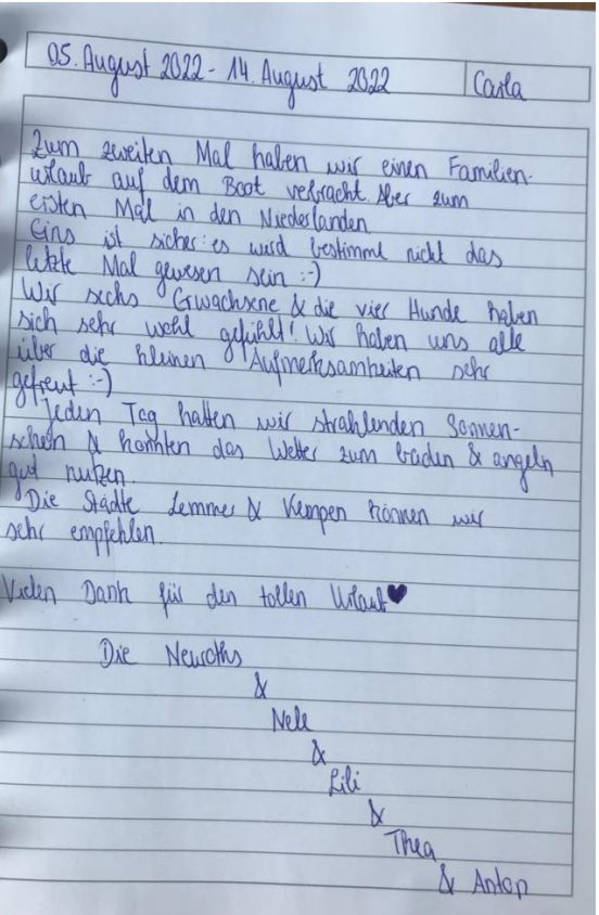 05. August 2022 - 14. August 2022 Carla
Zum zweiten Mal haben wir einen Familien-
urlaub auf dem Boot verbracht. Aber zum
ersten Mal in den Niederlanden
Eins ist sicher: es wird bestimmt nicht das
letzte Mal gewesen sein :-)
Wir sechs Erwachsene & die vier Hunde haben
sich sehr wohl gefühlt! Wir haben uns alle
über die kleinen Aufmerksamkeiten sehr
gefreut :-)
Jeden Tag hatten wir strahlenden Sonnen-
schein & konnten das Wetter zum baden & angeln
gut nutzen.
Die Städte Lemmer & Kempen können wir
sehr empfehlen.
Vielen Dank für den tollen Urlaub♥
Die
&
Nele
&
Lili
&
Thea
& Anton